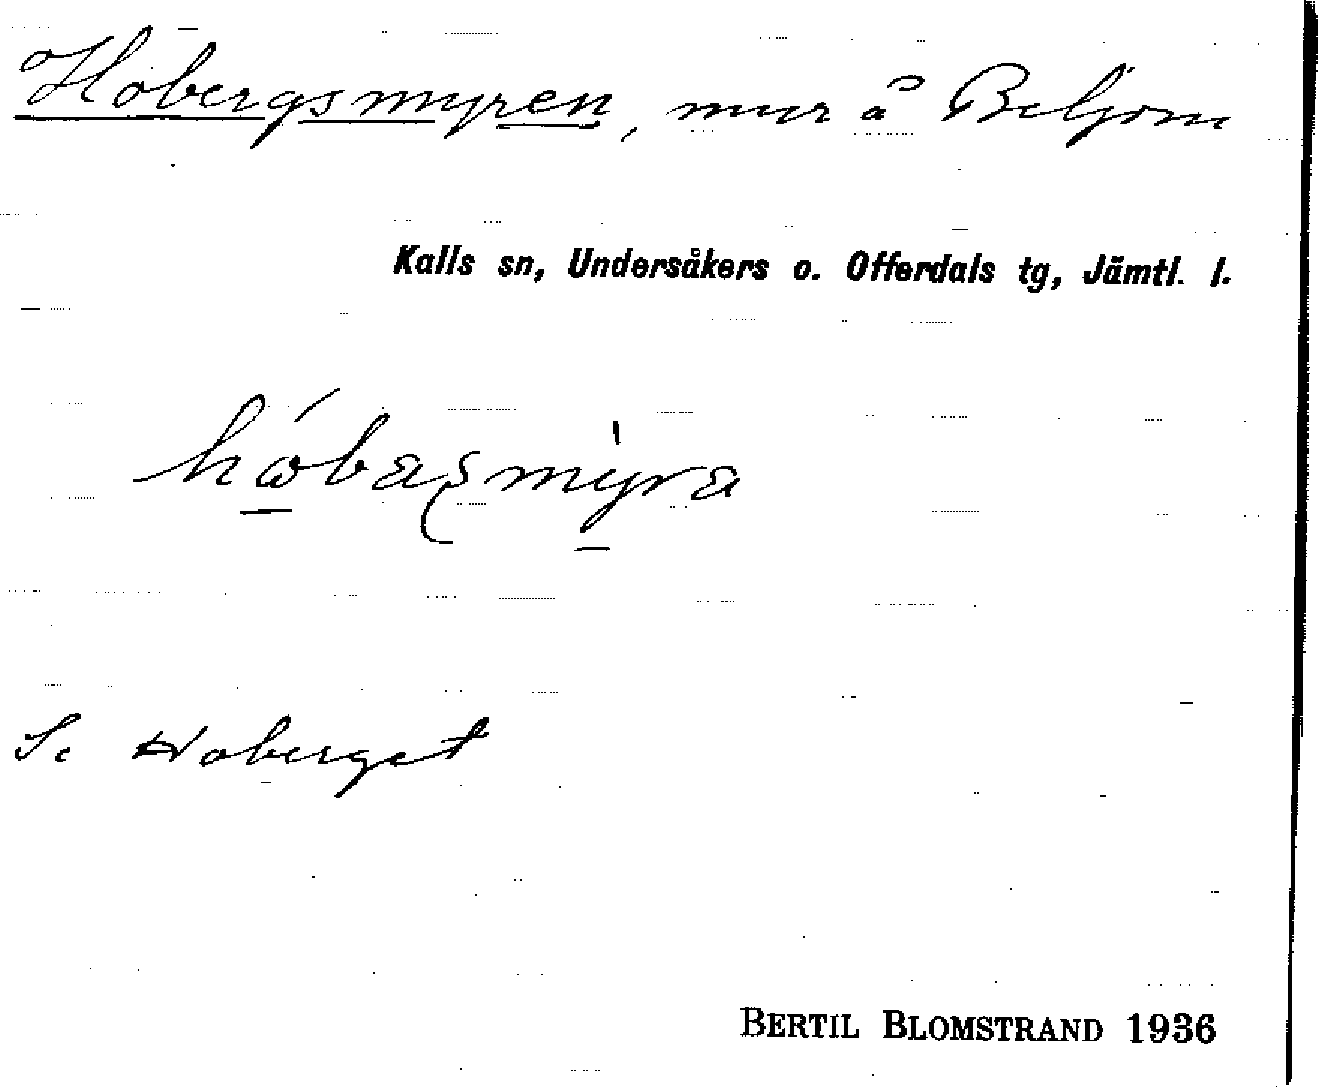 Hobergsmyren, myr å Beljom
Kalls sn, Undersåkers o. Offerdals tg, Jämtl. l.
Se Hoberget
BERTIL BLOMSTRAND 1936